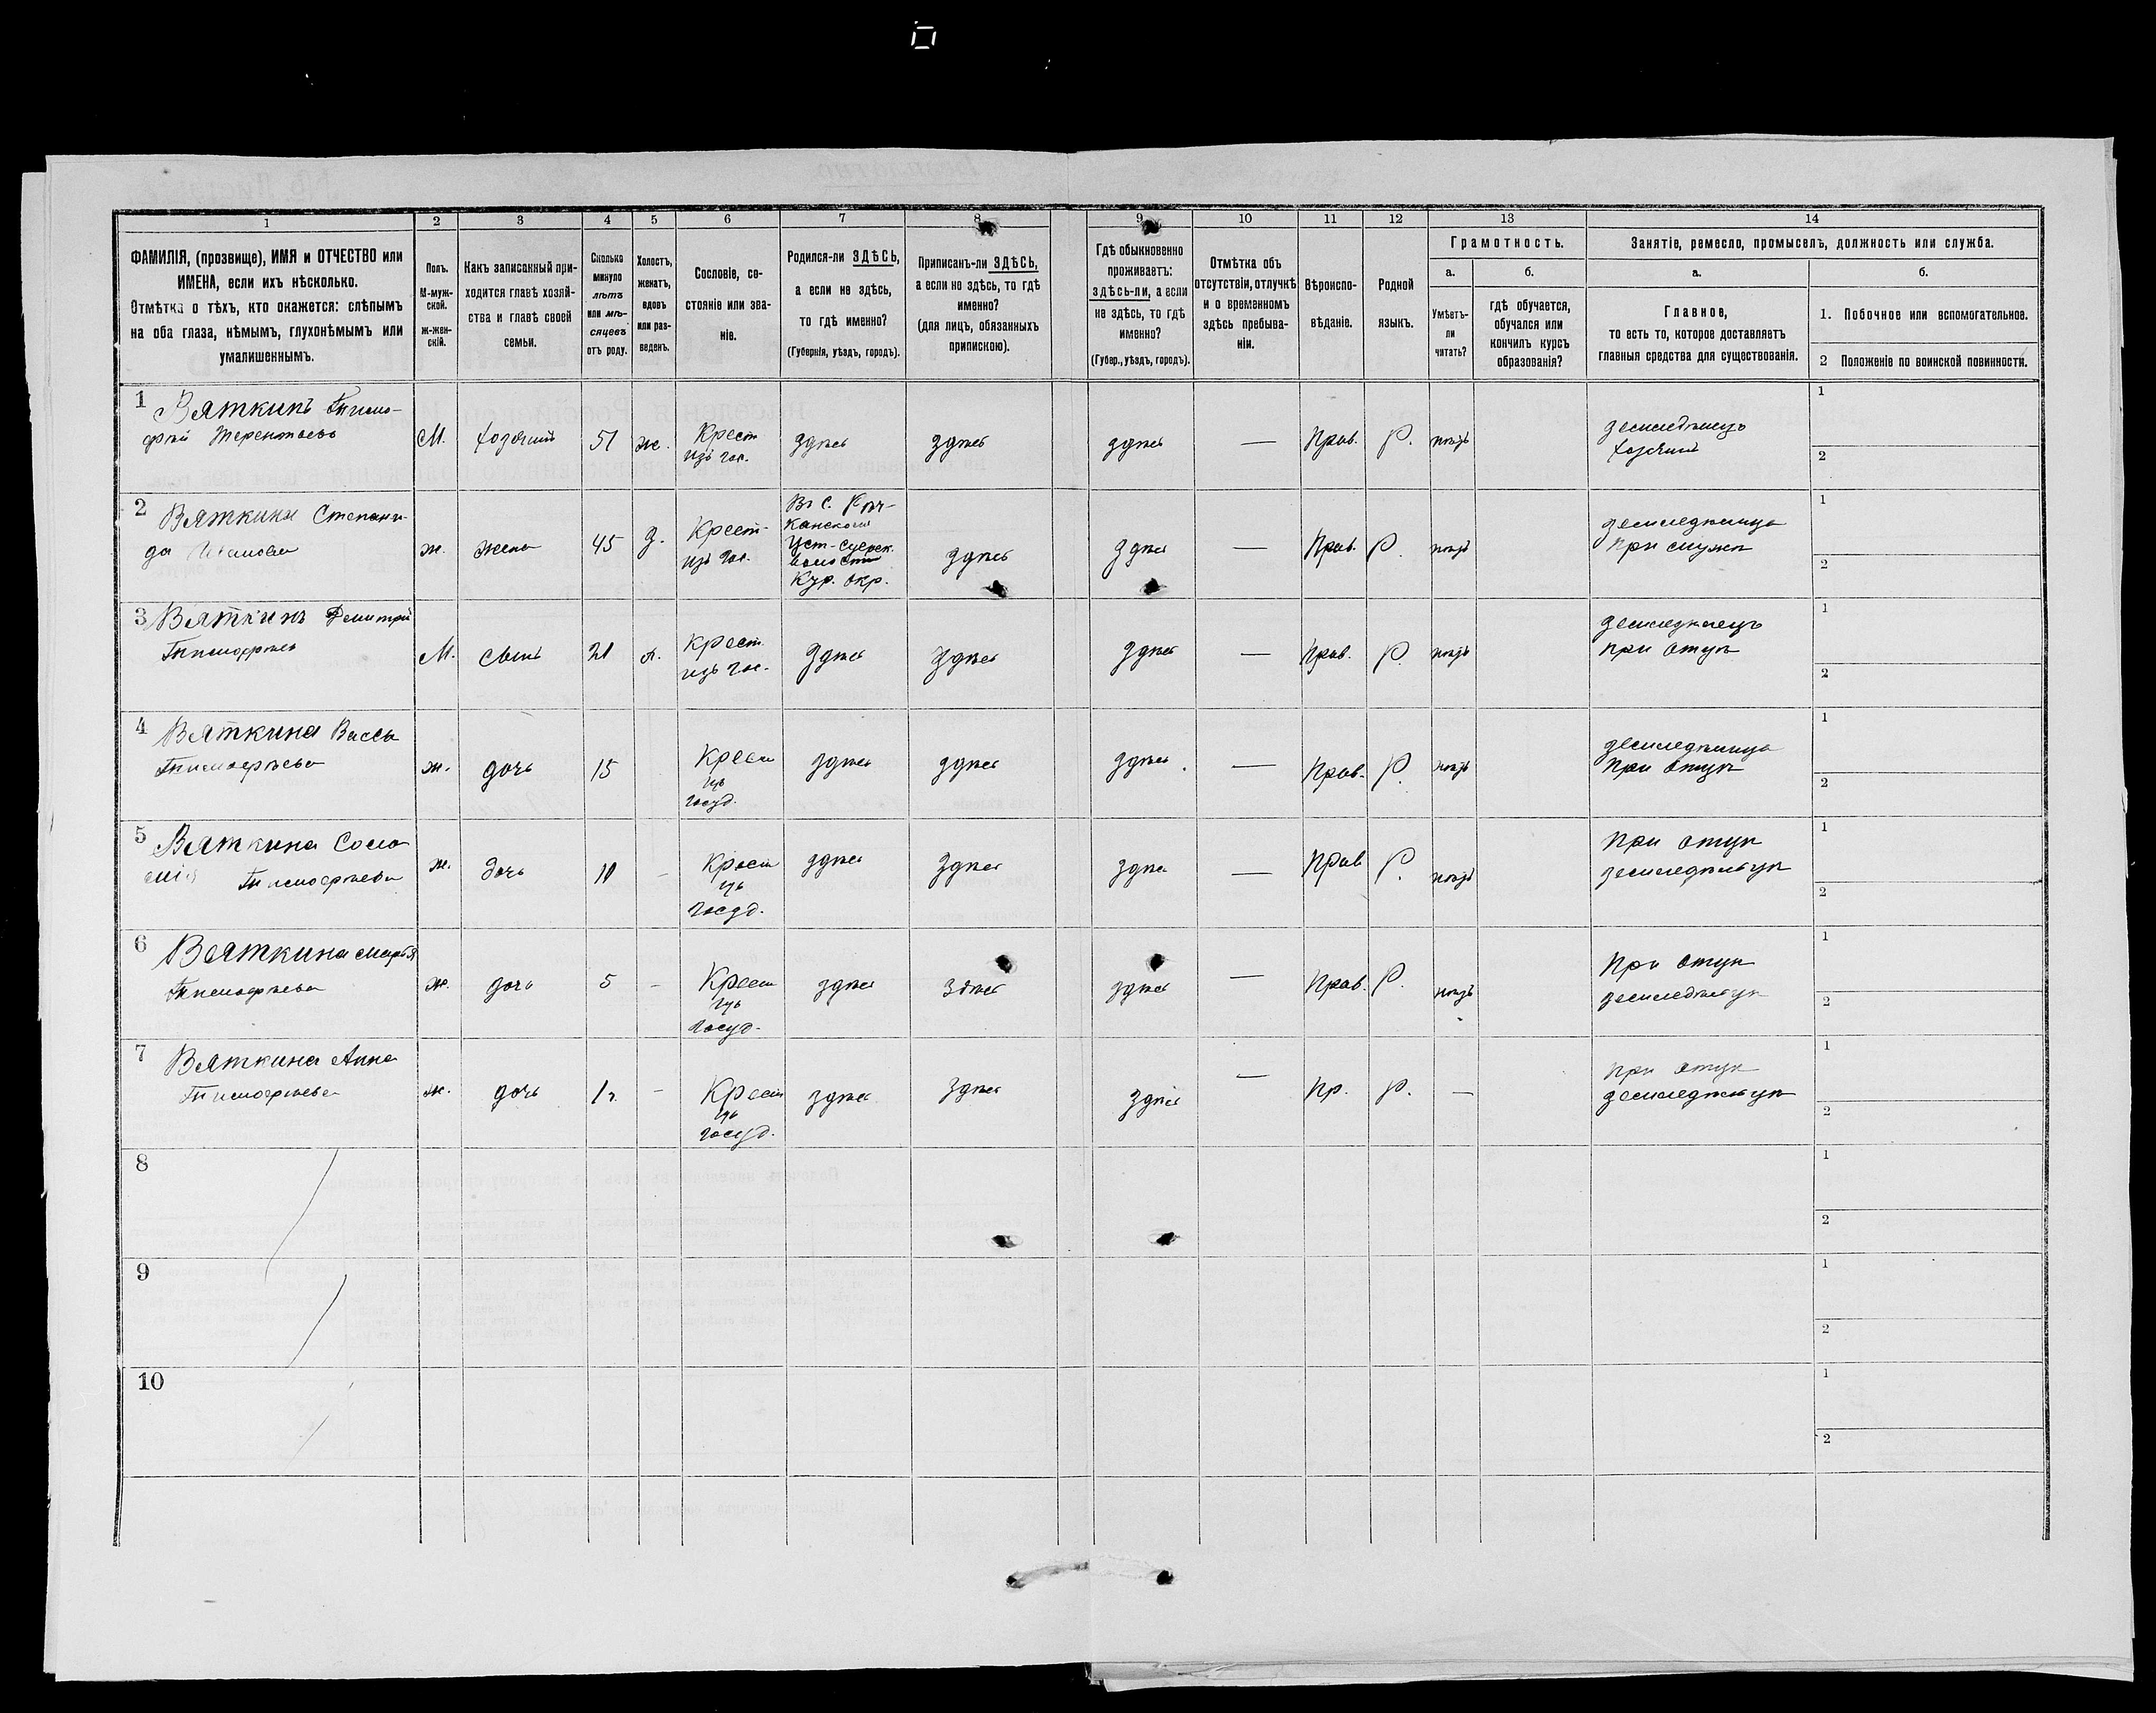 1 2 3 4 5 6 7 8 9 10 11 12 13 14
ФАМИЛІЯ, (прозвище), ИМЯ и ОТЧЕСТВО или
ИМЕНА, если ихъ нѣсколько.
Отмѣтка о тѣхъ, кто окажется: слѣпымъ
на оба глаза, нѣмымъ, глухонѣмымъ или
умалишеннымъ.
Полъ.
М-муж-
ской.
ж-жен-
скій.
Какъ записанный при-
ходится главѣ хозяй-
ства и главѣ своей
семьи.
Сколько
минуло
лѣтъ
или мѣ-
сяцевъ
отъ роду.
Холостъ,
женатъ,
вдовъ
или раз-
веденъ.
Сословіе, со-
стояніе или зва-
ніе.
Родился-ли ЗДѢСЬ,
а если не здѣсь,
то гдѣ именно?
(Губернія, уѣздъ, городъ).
Приписанъ-ли ЗДѢСЬ,
а если не здѣсь, то гдѣ
именно?
(для лицъ, обязанныхъ
припискою).
Гдѣ обыкновенно
проживаетъ:
здѣсь-ли, а если
не здѣсь, то гдѣ
именно?
(Губер., уѣздъ, городъ).
Отмѣтка объ
отсутствіи, отлучкѣ
и о временномъ
здѣсь пребыва-
ніи.
Вѣроиспо-
вѣданіе.
Родной
языкъ.
Грамотность.
а.
Умѣетъ-
ли
читать?
б.
гдѣ обучается,
обучался или
кончилъ курсъ
образованія?
Занятіе, ремесло, промыселъ, должность или служба.
а.
Главное,
то есть то, которое доставляетъ
главныя средства для существованія.
б.
1. Побочное или вспомогательное.
2 Положеніе по воинской повинности.
1 Вяткинъ Тимо-
фѣй Терентьевъ
М. хозяинъ 51 ж. Крест
изъ гос. здѣсь здѣсь здѣсь — Прав. Р. нѣтъ
земледѣлецъ
хозяинъ
1
2
2 Вяткина Степани-
да Иванова
ж. жена 45 з. Крест-
изъ гос.
Въ с.
Уст-Суерск.
волости
Кур. окр.
здѣсь здѣсь — Прав. Р. нѣтъ
земледѣлица
При мужѣ
1
2
3 Вяткинъ Димитрій
Тимофѣев
М. сынъ 21 х. Крест
изъ гос. здѣсь здѣсь здѣсь — Прав. Р. нѣтъ
земледѣлецъ
при отцѣ
1
2
4 Вяткина Васса
Тимофѣева
ж. дочь 15 Крест
изъ
госуд. здѣсь здѣсь здѣсь — Прав. Р. нѣтъ
земледѣлица
при отцѣ
1
2
5 Вяткина Соло
мія Тимофѣева
ж. дочь 10 — Крест
изъ
госуд. здѣсь здѣсь здѣсь — Прав Р. нѣтъ
При отцѣ
земледѣльцѣ
1
2
6 Вяткина Марья
Тимофѣева
ж. дочь 5 — Крест
изъ
госуд. здѣсь здѣсь здѣсь — Прав. Р. нѣтъ
При отцѣ
земледѣльцѣ
1
2
7 Вяткина Анна
Тимофѣева
ж. дочь 1 г. — Крест
изъ
госуд. здѣсь здѣсь здѣсь — Пр. Р. —
при отцѣ
земледѣльцѣ
1
2
8
1
2
9
1
2
10
1
2